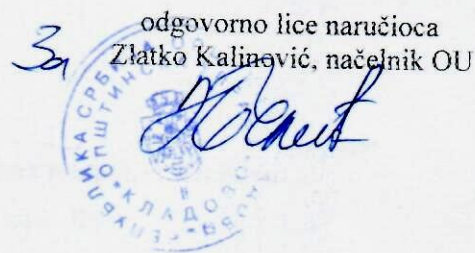 odgovorno lice naručioca
За Zlatko Kalinović, načelnik OU
РЕПУБЛИКА СРБИЈА
ОПШТИНС
КЛАДОВО